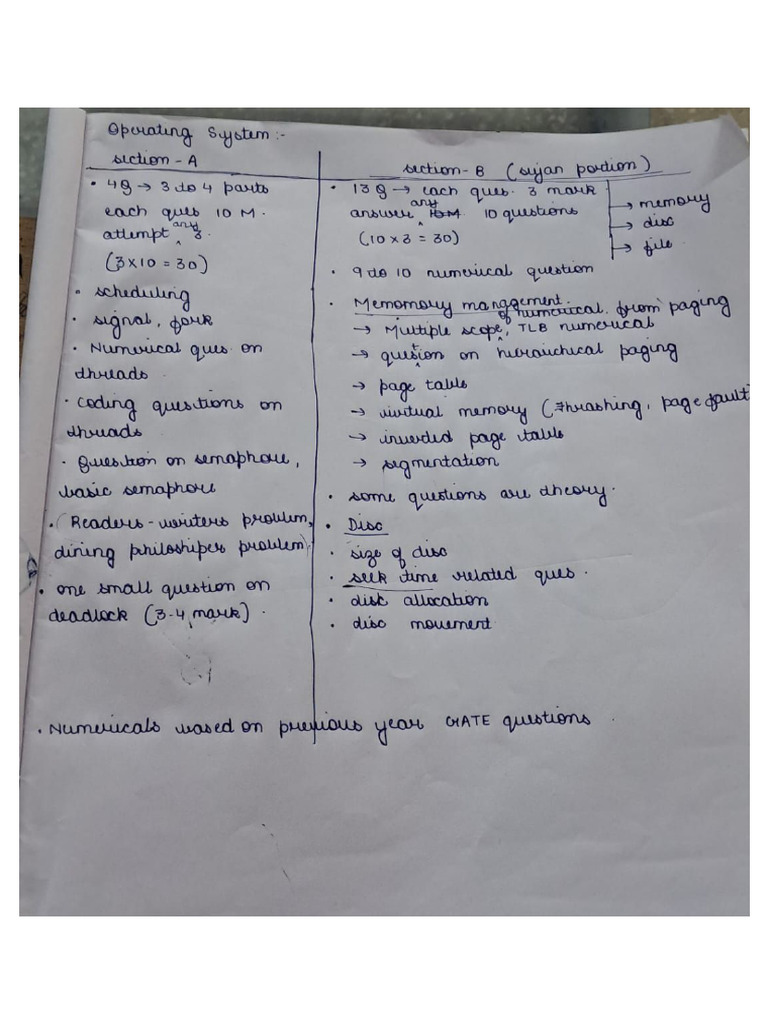 Operating System :-
section - A
• 4Q → 3 to 4 parts
each ques 10 M.
attempt any 3.
(3 x 10 = 30)
• scheduling
• signal, fork
• Numerical ques on
threads
• Coding questions on
threads
• Question on semaphore,
basic semaphore
• (Readers - writers problem,
dining philoshiper problem)
• one small question on
deadlock (3-4 mark).
section - B (sujan portion)
• 13 Q → each ques. 3 mark
answer any 10 questions
(10 x 3 = 30)
→ memory
→ disc
→ file
• 9 to 10 numerical question
• Memomory mangement.
→ Multiple scope of numerical from paging, TLB numerical
→ question on hierarchical paging
→ page table
→ virtual memory (Thrashing, page fault
→ inverted page table
→ segmentation
• some questions are theory.
• Disc
• size of disc
• seek time related ques.
• disk allocation
• disc movement
• Numericals based on previous year GATE questions.